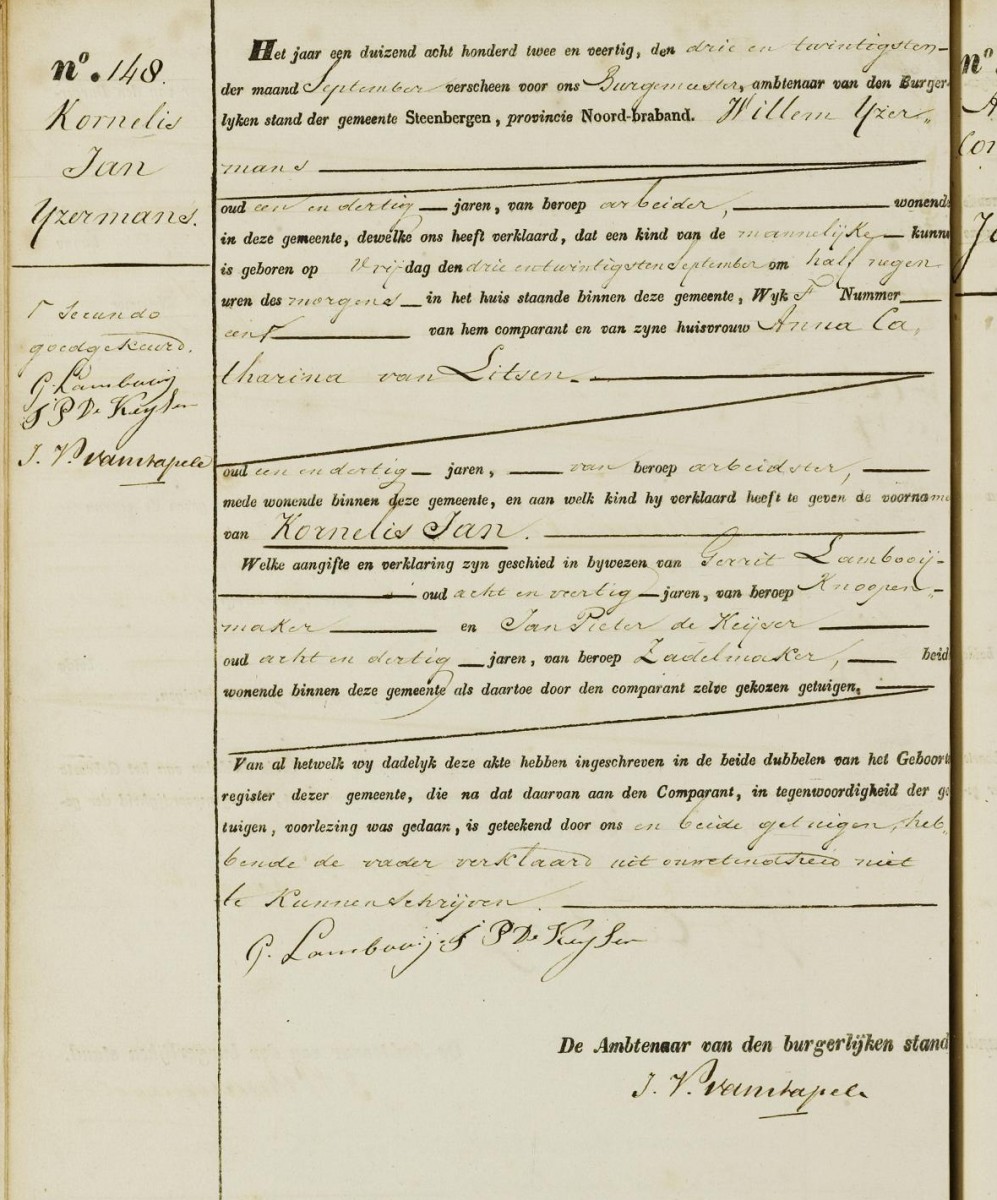 nº. 148.
Kornelis
Jan
Yzermans.
Γ Secundo
goedgekeurd.
G. Lambooij
J P De Keyser
J. V. van Stapele
Het jaar een duizend acht honderd twee en veertig, den drie en twintigsten
der maand September verscheen voor ons Burgemeester, ambtenaar van den Burger-
lyken stand der gemeente Steenbergen, provincie Noord-braband. Willem Yzer„
mans
oud een en dertig jaren, van beroep arbeider, wonende
in deze gemeente, dewelke ons heeft verklaard, dat een kind van de mannelyke kunne
is geboren op Vrijdag den drie entwintigsten September om half negen
uren des morgens in het huis staande binnen deze gemeente, Wyk F Nummer
een Γ van hem comparant en van zyne huisvrouw Anna Ca„
tharina van Litsen.
oud een en dertig jaren, van beroep arbeidster,
mede wonende binnen deze gemeente, en aan welk kind hy verklaard heeft te geven de voorname
van Kornelis Jan.
Welke aangifte en verklaring zyn geschied in bywezen van Gerrit Lambooij
oud acht en veertig jaren, van beroep Knoopen„
maker en Jan Pieter de Keijser
oud acht en dertig jaren, van beroep Zadelmaker, beid
wonende binnen deze gemeente als daartoe door den comparant zelve gekozen getuigen.
Van al hetwelk wy dadelyk deze akte hebben ingeschreven in de beide dubbelen van het Geboorte
register dezer gemeente, die na dat daarvan aan den Comparant, in tegenwoordigheid der ge
tuigen, voorlezing was gedaan, is geteekend door ons en beide getuigen, heb„
bende de vader verklaard uit onwetendheid niet
te kunnen schrijven.
G. Lambooij J P De Keyser
De Ambtenaar van den burgerlijken stand
J. V. van Stapele
nº